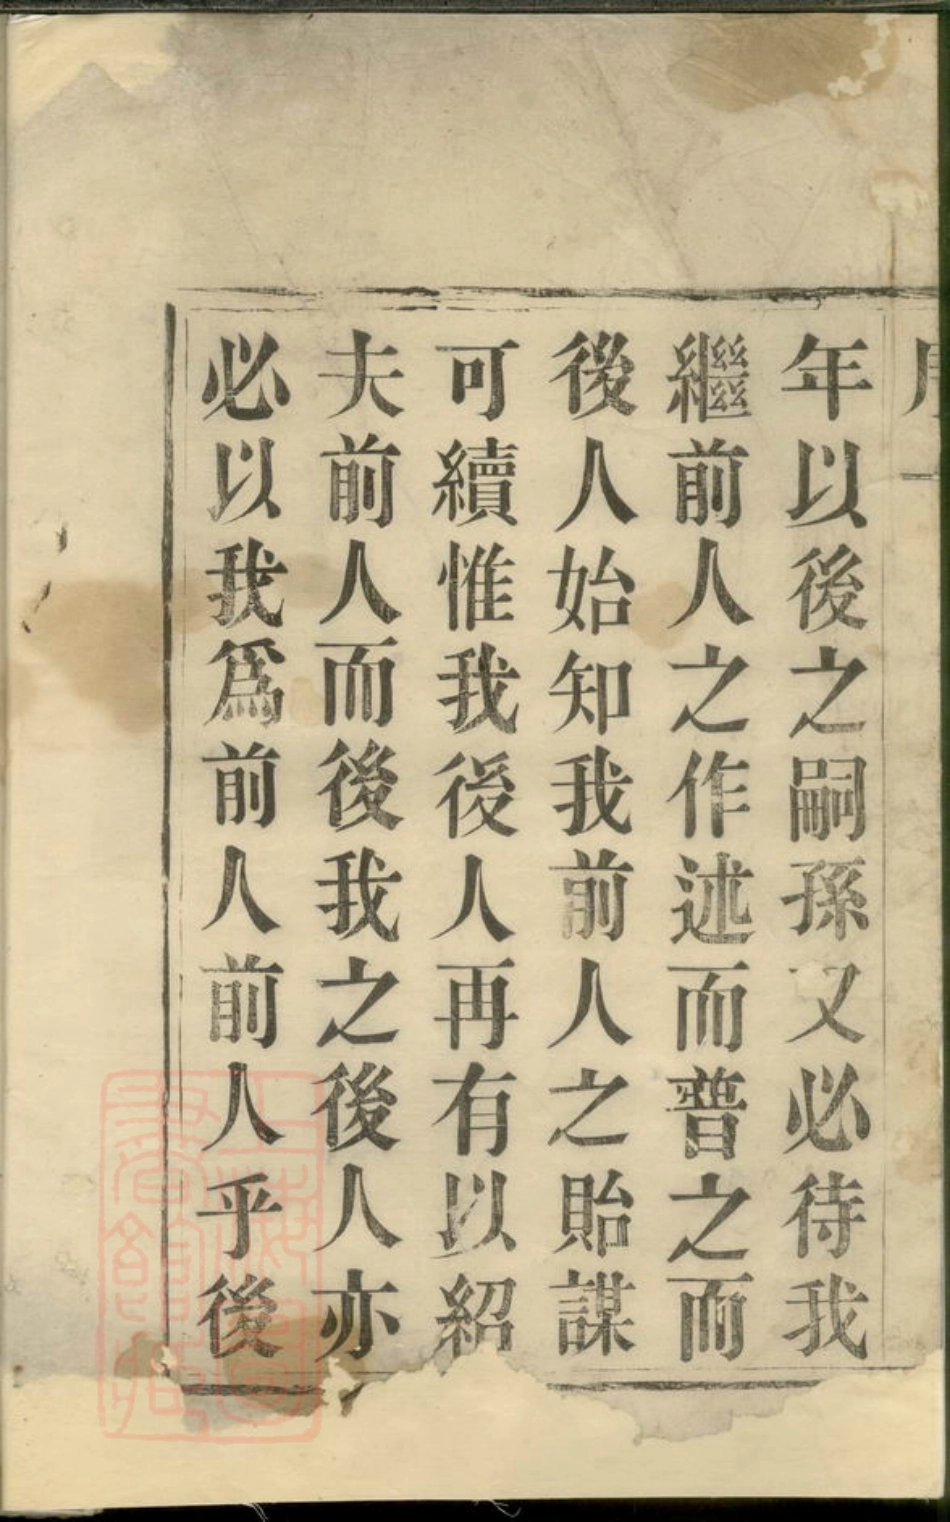 年以後之嗣孫又必待我
繼前人之作述而普之而
後人始知我前人之貽謀
可續惟我後人再有以紹
夫前人而後我之後人亦
必以我爲前人前人乎後